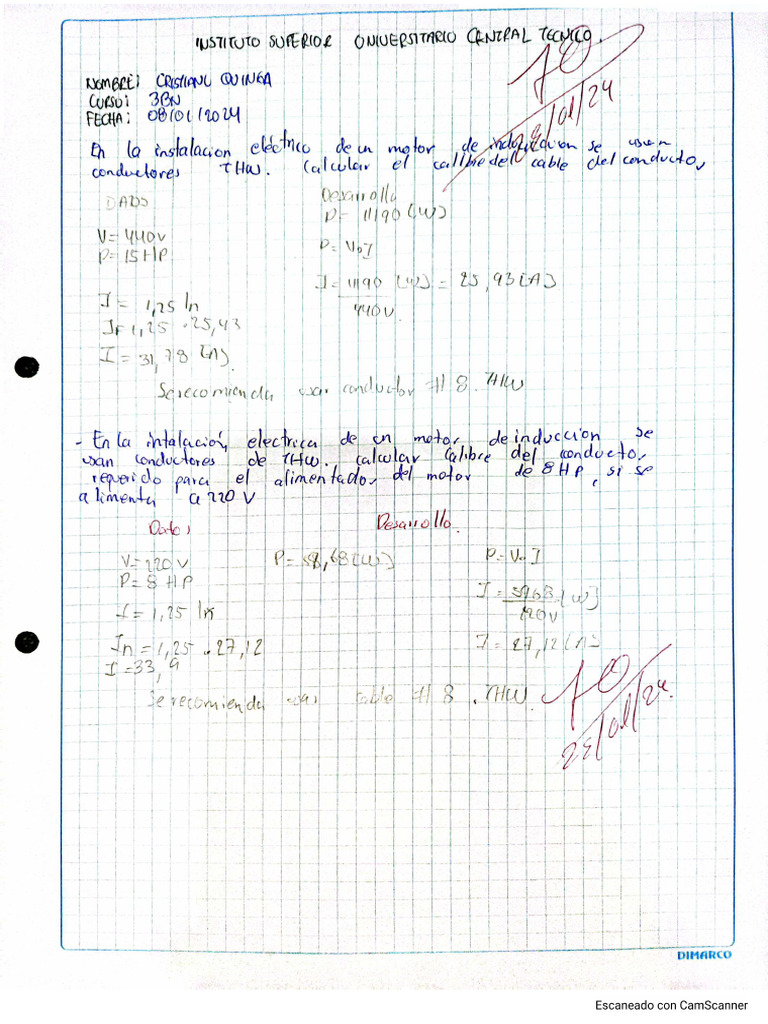 INSTITUTO SUPERIOR UNIVERSITARIO CENTRAL TECNICO.
10
24/01/24
NOMBRE: CRISTIANL QUINGA
CURSO: 3BN
FECHA: 08/01/2024
En la instalacion eléctrico de un motor de induccion se usan
conductores THW. Calcular el calibre del cable del conducto,
DATOS
Desarrollo
P= 11190 (W)
V= 440v
P= 15 HP
P= V.I
I= 11190 [W] = 25,93[A]
440V.
I= 1,25 In
I= 1,25 . 25,43
I= 31,78 [A].
Se recomienda usar conductor # 8. THW
- En la intalación, electrica de un motor de induccion se
usan conductores de THW. calcular calibre del conducto,
requerido para el alimentado, del motor de 8 HP, si se
alimenta a 220 V
Datos
Desarrollo.
V= 220 V
P= 8 HP
P= 58,68 (W)
P= V.I
I= 5968 [W]
220V
I= 1,25 In
In= 1,25 . 27,12
I= 33,9
I= 27,12 (A)
Se recomienda usar cable # 8 . THW.
10
24/01/24.
DIMARCO
Escaneado con CamScanner